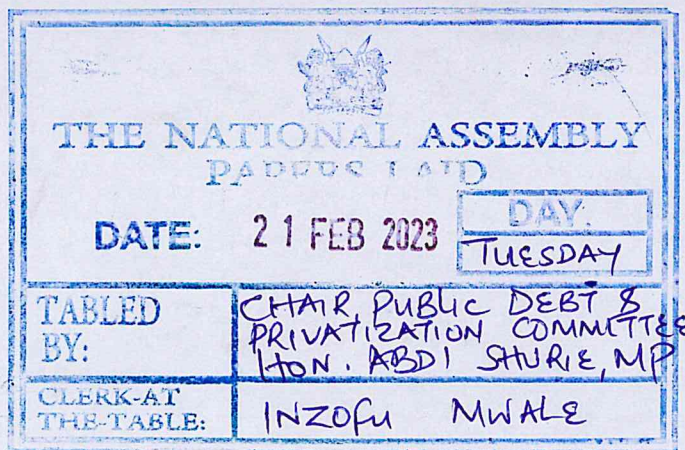 THE NATIONAL ASSEMBLY
PAPERS LAID
DATE: 21 FEB 2023
DAY:
TUESDAY
TABLED BY:
CHAIR, PUBLIC DEBT &
PRIVATIZATION COMMITTEE
HON. ABDI SHURIE, MP
CLERK-AT
THE-TABLE:
INZOFU MWALE